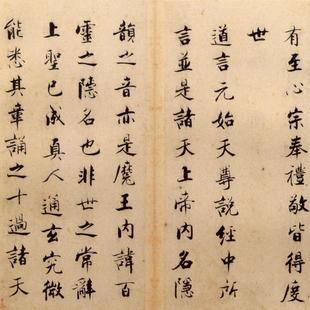 有至心宗奉禮敬皆得度
世
道言元始天尊說經中所
言並是諸天上帝內名隱
韻之音亦是魔王內諱百
靈之隱名也非世之常辭
上聖已成真人通玄究微
能悉其章誦之十過諸天